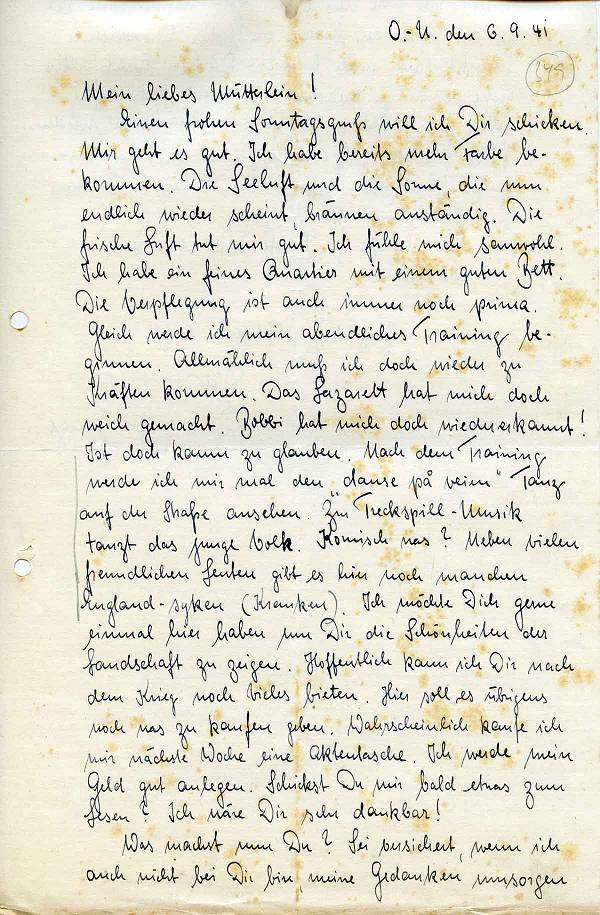 O.-U. den 6.9.41
349
Mein liebes Mütterlein!
Einen frohen Sonntagsgruß will ich Dir schicken.
Mir geht es gut. Ich habe bereits mehr Farbe be-
kommen. Die Seeluft und die Sonne, die nun
endlich wieder scheint, bräunen anständig. Die
frische Luft tut mir gut. Ich fühle mich sauwohl.
Ich habe ein feines Quartier mit einem guten Bett.
Die Verpflegung ist auch immer noch prima.
Gleich werde ich mein abendliches Training be-
ginnen. Allmählich muß ich doch wieder zu
Kräften kommen. Das Lazarett hat mich doch
weich gemacht. Bobbi hat mich doch wiedererkannt!
Ist doch kaum zu glauben. Nach dem Training
werde ich mir mal den "danse på veien" Tanz
auf der Straße ansehen. Zur Treckspill-Musik
tanzt das junge Volk. Komisch was? Neben vielen
freundlichen Leuten gibt es hier noch manchen
England-syken (Kranken). Ich möchte Dich gerne
einmal hier haben um Dir die Schönheiten der
Landschaft zu zeigen. Hoffentlich kann ich Dir nach
dem Krieg noch vieles bieten. Hier soll es übrigens
noch was zu kaufen geben. Wahrscheinlich kaufe ich
mir nächste Woche eine Aktentasche. Ich werde mein
Geld gut anlegen. Schickst Du mir bald etwas zum
Lesen? Ich wäre Dir sehr dankbar!
Was machst nun Du? Sei versichert, wenn ich
auch nicht bei Dir bin, meine Gedanken umsorgen